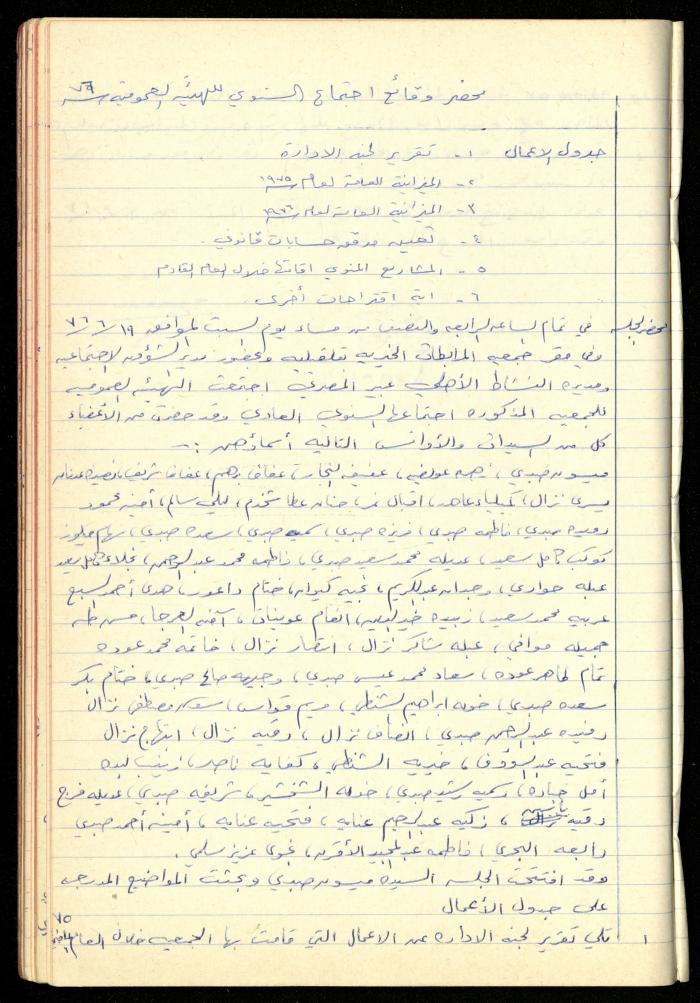 محضر وقائع اجتماع السنوي للهيئة العمومية سنة ٧٦
جدول الاعمال ١- تقرير لجنة الادارة
٢- الميزانية العامة لعام ١٩٧٥
٣- الميزانية العامة لعام ١٩٧٦
٤- تعيين مدقق حسابات قانوني.
٥- المشاريع المنوي اقامتها خلال العام القادم
٦- اية اقتراحات أخرى.
محضر الجلسة في تمام الساعه الرابعه والنصف من مساء يوم السبت الموافق ١٩/٦/٧٦
وفي مقر جمعية المرابطات الخيريه قلقيليه وبحضور مدير الشؤون الاجتماعيه
ومديره النشاط الأهلي عبير المصري اجتمعت الهيئة العموميه
للجمعيه المذكوره اجتماعها السنوي العادي وقد حضرت من الأعضاء
كل من السيدات والأوانس التاليه أسماؤهن :-
ميسون صبري، زهده، عفيفه النجار، عفاف زهم، عفاف شريف،
يسرى نزال، عاهد، اقبال نمر، حنان عطا شخدم، ليلى سالم، أمينه محمود
رفيده صبري، فاطمه صبري، فرزه صبري، سميه صبري، سعده صبري، سهام
كوكب كامل سعيد، عديله محمد سعيد صبري، فاطمه محمد عبد الرحمن، نجلاء كامل سعيد
عبله حواري، وجدان عبد الكريم، نجيه كيوان، ختام داعور، هدى أحمد السبع
عربيه محمد سعيد، زبيده، انعام عوينات، آمنه العرجا، ميسر طه
جميله موافي، عبله شاكر نزال، انتظار نزال، خاتمه محمد عوده
تمام طاهر عوده، سعاد محمد عيسى صبري، وجيهه صالح صبري، ختام بكر
سعده صبري، خوله ابراهيم الشنطي، مريم قواس، مصطفى نزال
رفيده عبد الرحمن صبري، انصاف نزال، رقيه نزال، ابتهاج نزال
فتحيه عبد الرؤوف، خيريه الشنطي، كفايه ناصر، زينب لبده
أمل جباره، رسميه رشيد صبري، خوله الشخشير، شريفه صبري، عديله فريج
رقيه، زكيه عبد الرحيم عنايه، فتحيه عنايه، أمينه أحمد صبري
رابعه البحري، فاطمه عبد المجيد الأقرع، نجوى عزيز سلمي.
وقد افتتحت الجلسه السيده ميسون صبري وبحثت المواضيع المدرجه
على جدول الأعمال
١ تلي تقرير لجنه الاداره عن الاعمال التي قامت بها الجمعيه خلال العام الماضي ٧٥